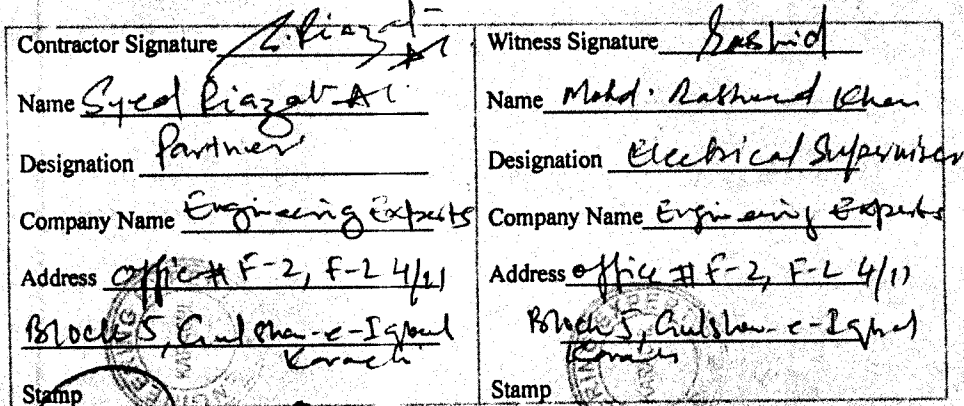 Contractor Signature S. Riazat Ali
Name Syed Riazat Ali
Designation Partner
Company Name Engineering Experts
Address Office # F-2, F-L 4/11
Block 5, Gulshan-e-Iqbal
Karachi
Stamp
Witness Signature Rashid
Name Mohd. Rasheed Khan
Designation Electrical Supervisor
Company Name Engineering Experts
Address Office # F-2, F-L 4/11
Block 5, Gulshan-e-Iqbal
Karachi
Stamp